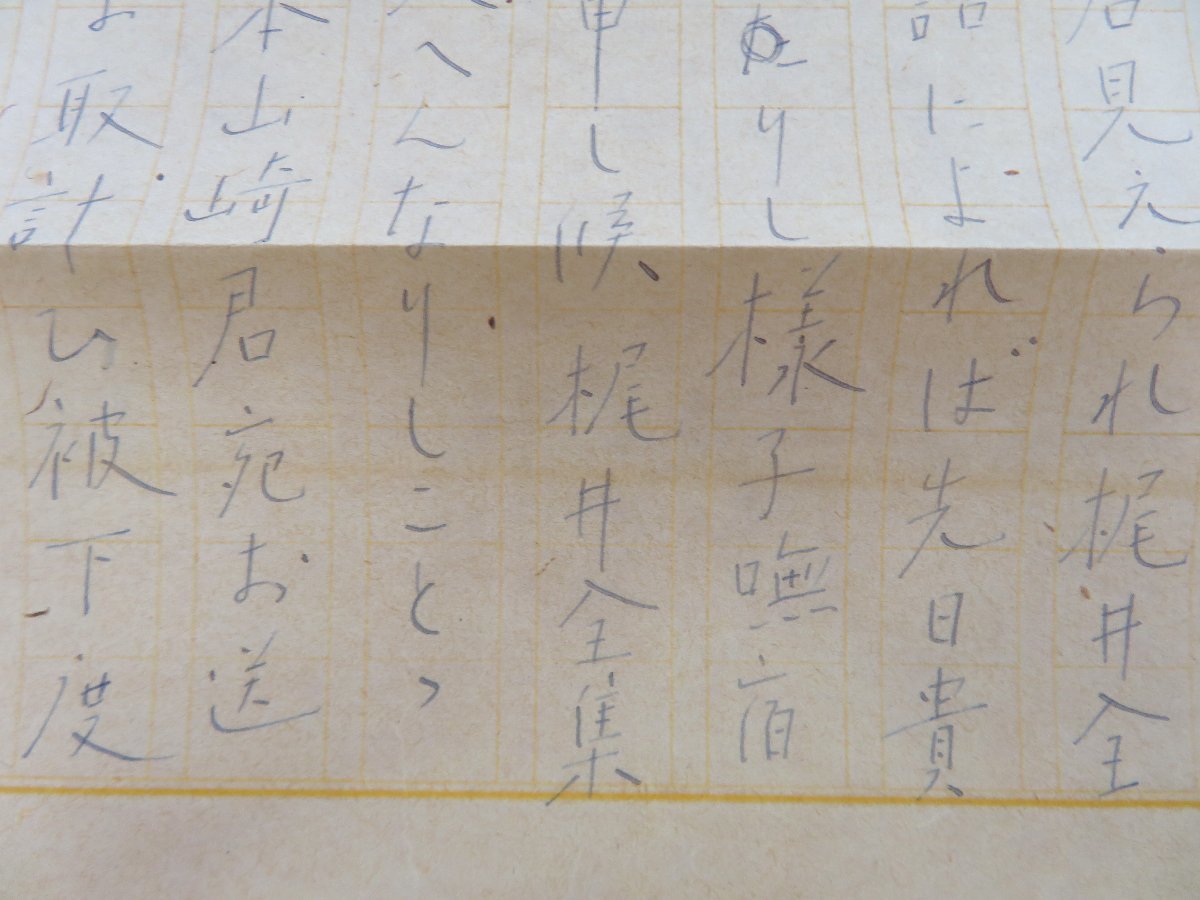 君見えられ梶井全
話によれば先日貴
たりし様子嘸宿
申し候、梶井全集
へんなりしことゝ
本山崎君宛お送
取計ひ被下度